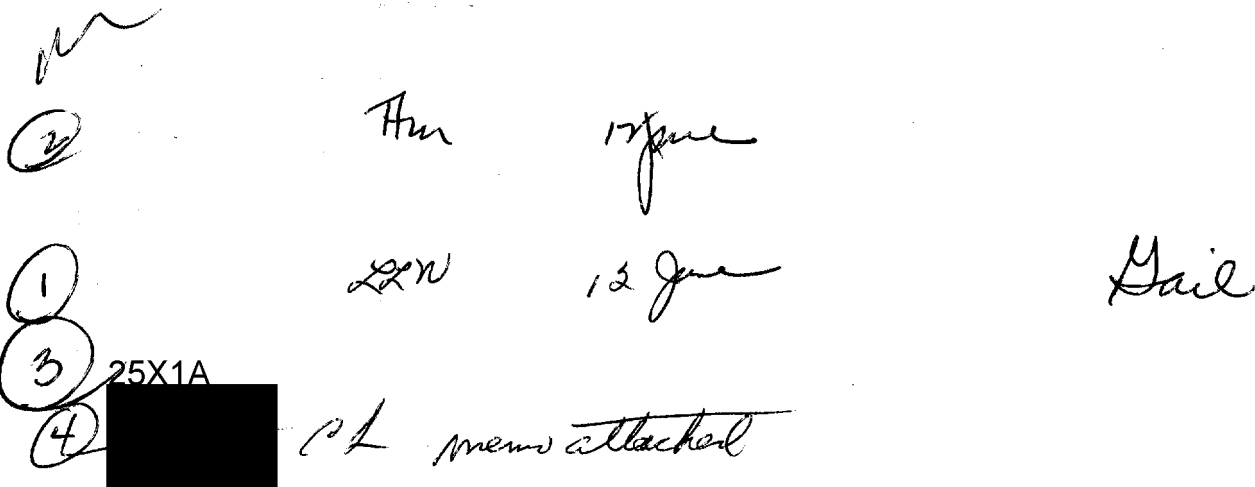 ② 12 June
① LLW 12 June Gail
③ 25X1A
④ memo attached